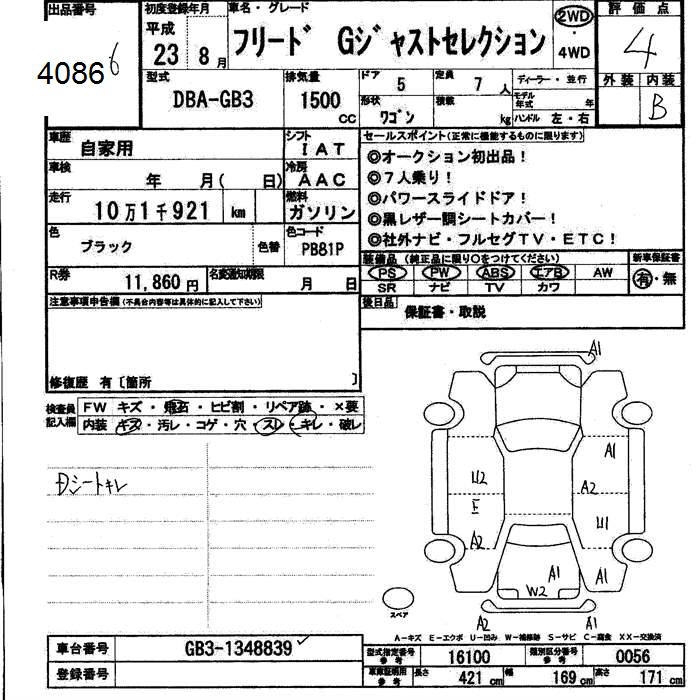 出品番号
40866
初度登録年月
平成
23 8月
車名・グレード
フリード Gジャストセレクション
2WD
・
4WD
評価点
4
外装 内装
B
型式
DBA-GB3
排気量
1500
cc
ドア 5
定員 7人
形状
ワゴン
積載
kg
ディーラー・並行
モデル年式 年
ハンドル 左・右
車歴
自家用
シフト
IAT
車検
年 月( 日)
冷房
AAC
走行
10万1千921 km
燃料
ガソリン
色
ブラック
色替
色コード
PB81P
R券
11,860円
名変通知期限
月 日
セールスポイント(正常に機能するものに限ります)
◎オークション初出品!
◎7人乗り!
◎パワースライドドア!
◎黒レザー調シートカバー!
◎社外ナビ・フルセグTV・ETC!
装備品(純正品に限り○をつけてください)
PS PW ABS エアB AW
SR ナビ TV カワ
新車保証書
有・無
後日品
保証書・取説
注意事項申告欄(不具合内容等は具体的に記入して下さい)
修復歴 有〔箇所 〕
検査員
記入欄
FW キズ・飛石・ヒビ割・リペア跡・×要
内装 キズ・汚レ・コゲ・穴・スレ・キレ・破レ
Dシートキレ
A1
A1
U2
A2
E
U1
A2
A1
A1
W2
スペア
A2
A1
A-キズ E-エクボ U-凹み W-補修跡 S-サビ C-腐食 XX-交換済
車台番号
GB3-1348839
登録番号
型式指定番号
参考
16100
類別区分番号
参考
0056
車庫証明用
参考
長さ 421 cm
幅 169 cm
高さ 171 cm